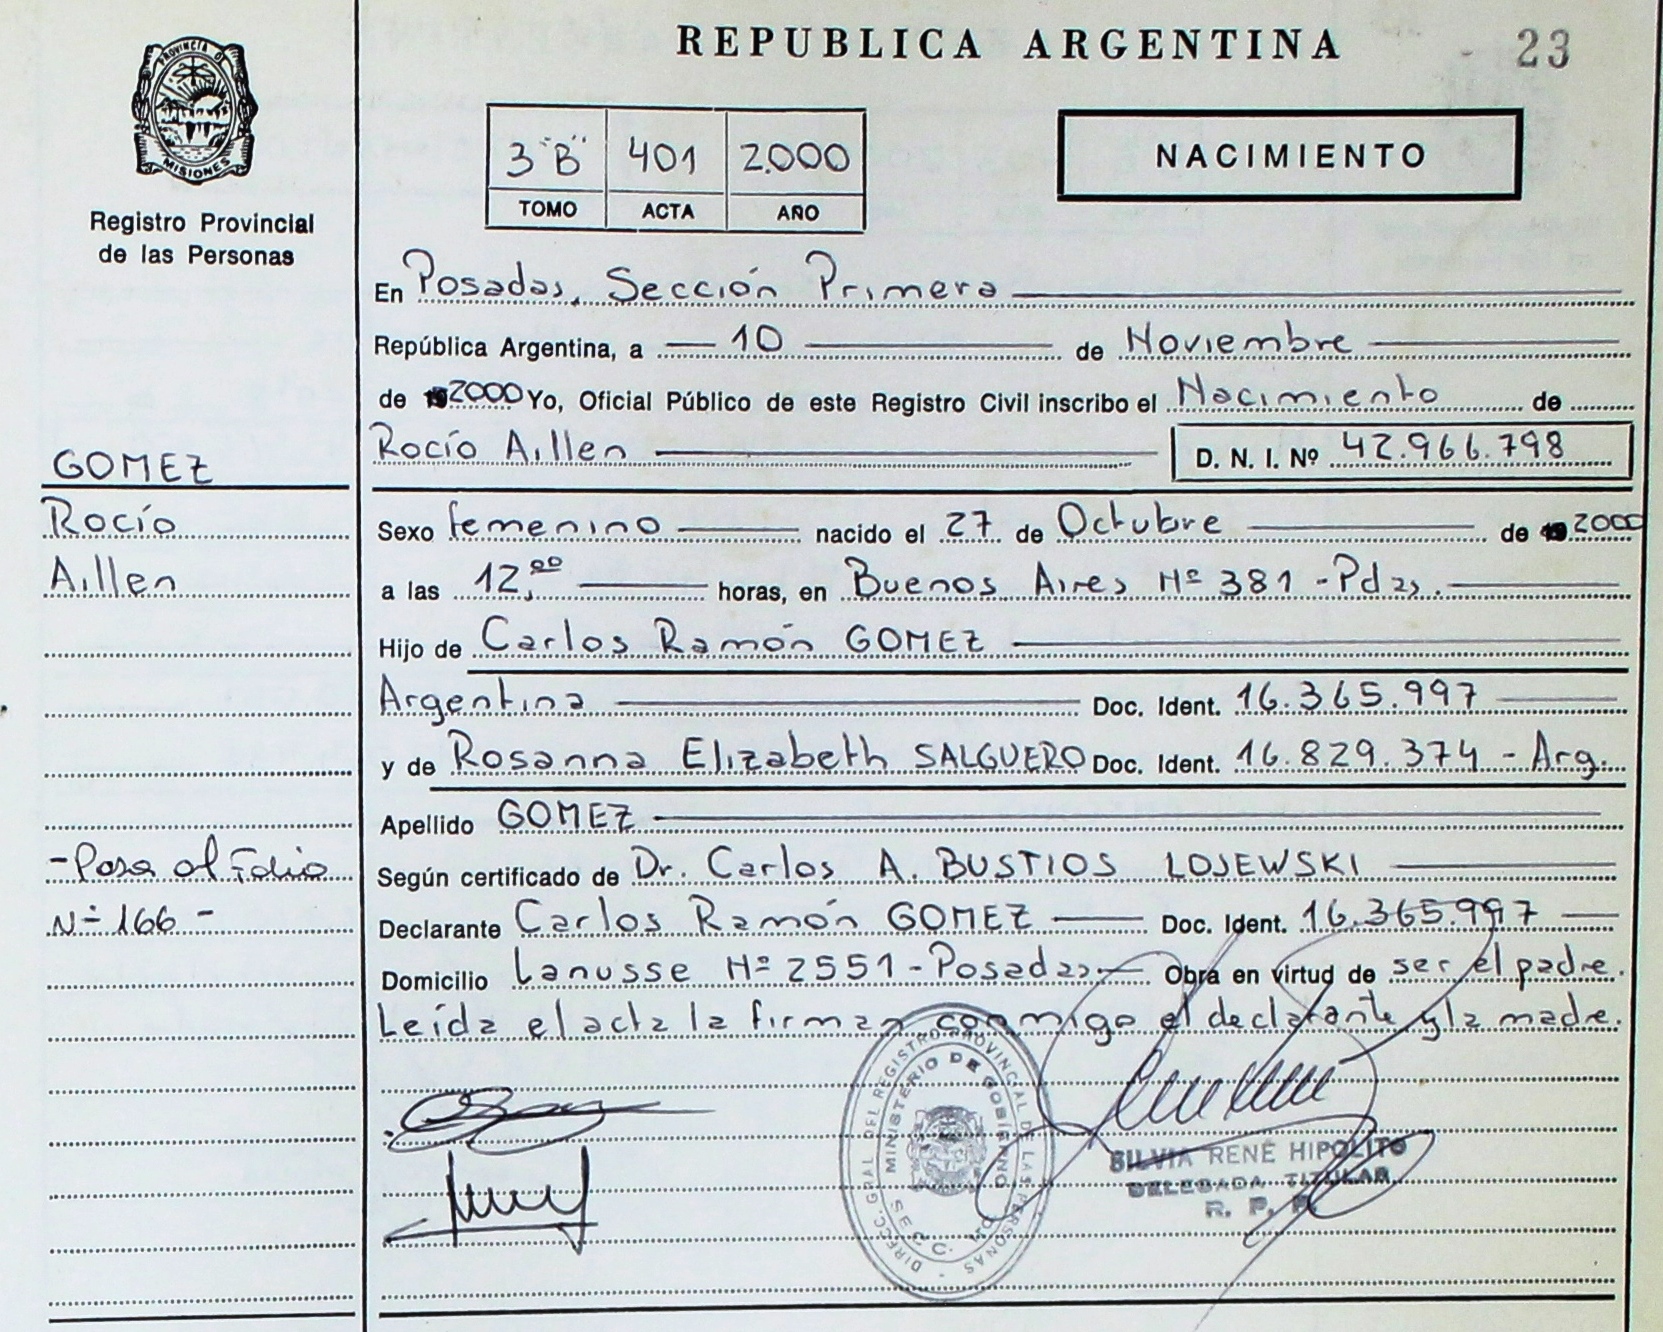 REPUBLICA ARGENTINA
- 23
PROVINCIA D
MISIONES
Registro Provincial
de las Personas
3 "B" 401 2.000
TOMO ACTA AÑO
NACIMIENTO
En Posadas, Sección Primera
República Argentina, a 10 de Noviembre
de 2000 Yo, Oficial Público de este Registro Civil inscribo el Nacimiento de
Rocío Aillen D. N. I. Nº 42.966.798
GOMEZ
Rocío
Aillen
Sexo femenino nacido el 27 de Octubre de 2000
a las 12,00 horas, en Buenos Aires Nº 381 - Pdas.
Hijo de Carlos Ramón GOMEZ
Argentina Doc. Ident. 16.365.997
y de Rosanna Elizabeth SALGUERO Doc. Ident. 16.829.374 - Arg.
Apellido GOMEZ
-Pasa al Folio
Nº 166 -
Según certificado de Dr. Carlos A. BUSTIOS LOJEWSKI
Declarante Carlos Ramón GOMEZ Doc. Ident. 16.365.997
Domicilio Lanusse Nº 2551 - Posadas Obra en virtud de ser el padre.
Leída el acta la firman conmigo el declarante y la madre.
DIRECC. GRAL DEL REGISTRO PROVINCIAL DE LAS PERSONAS
MINISTERIO DE GOBIERNO
SILVIA RENÉ HIPOLITO
DELEGADA TITULAR
R. P. P.